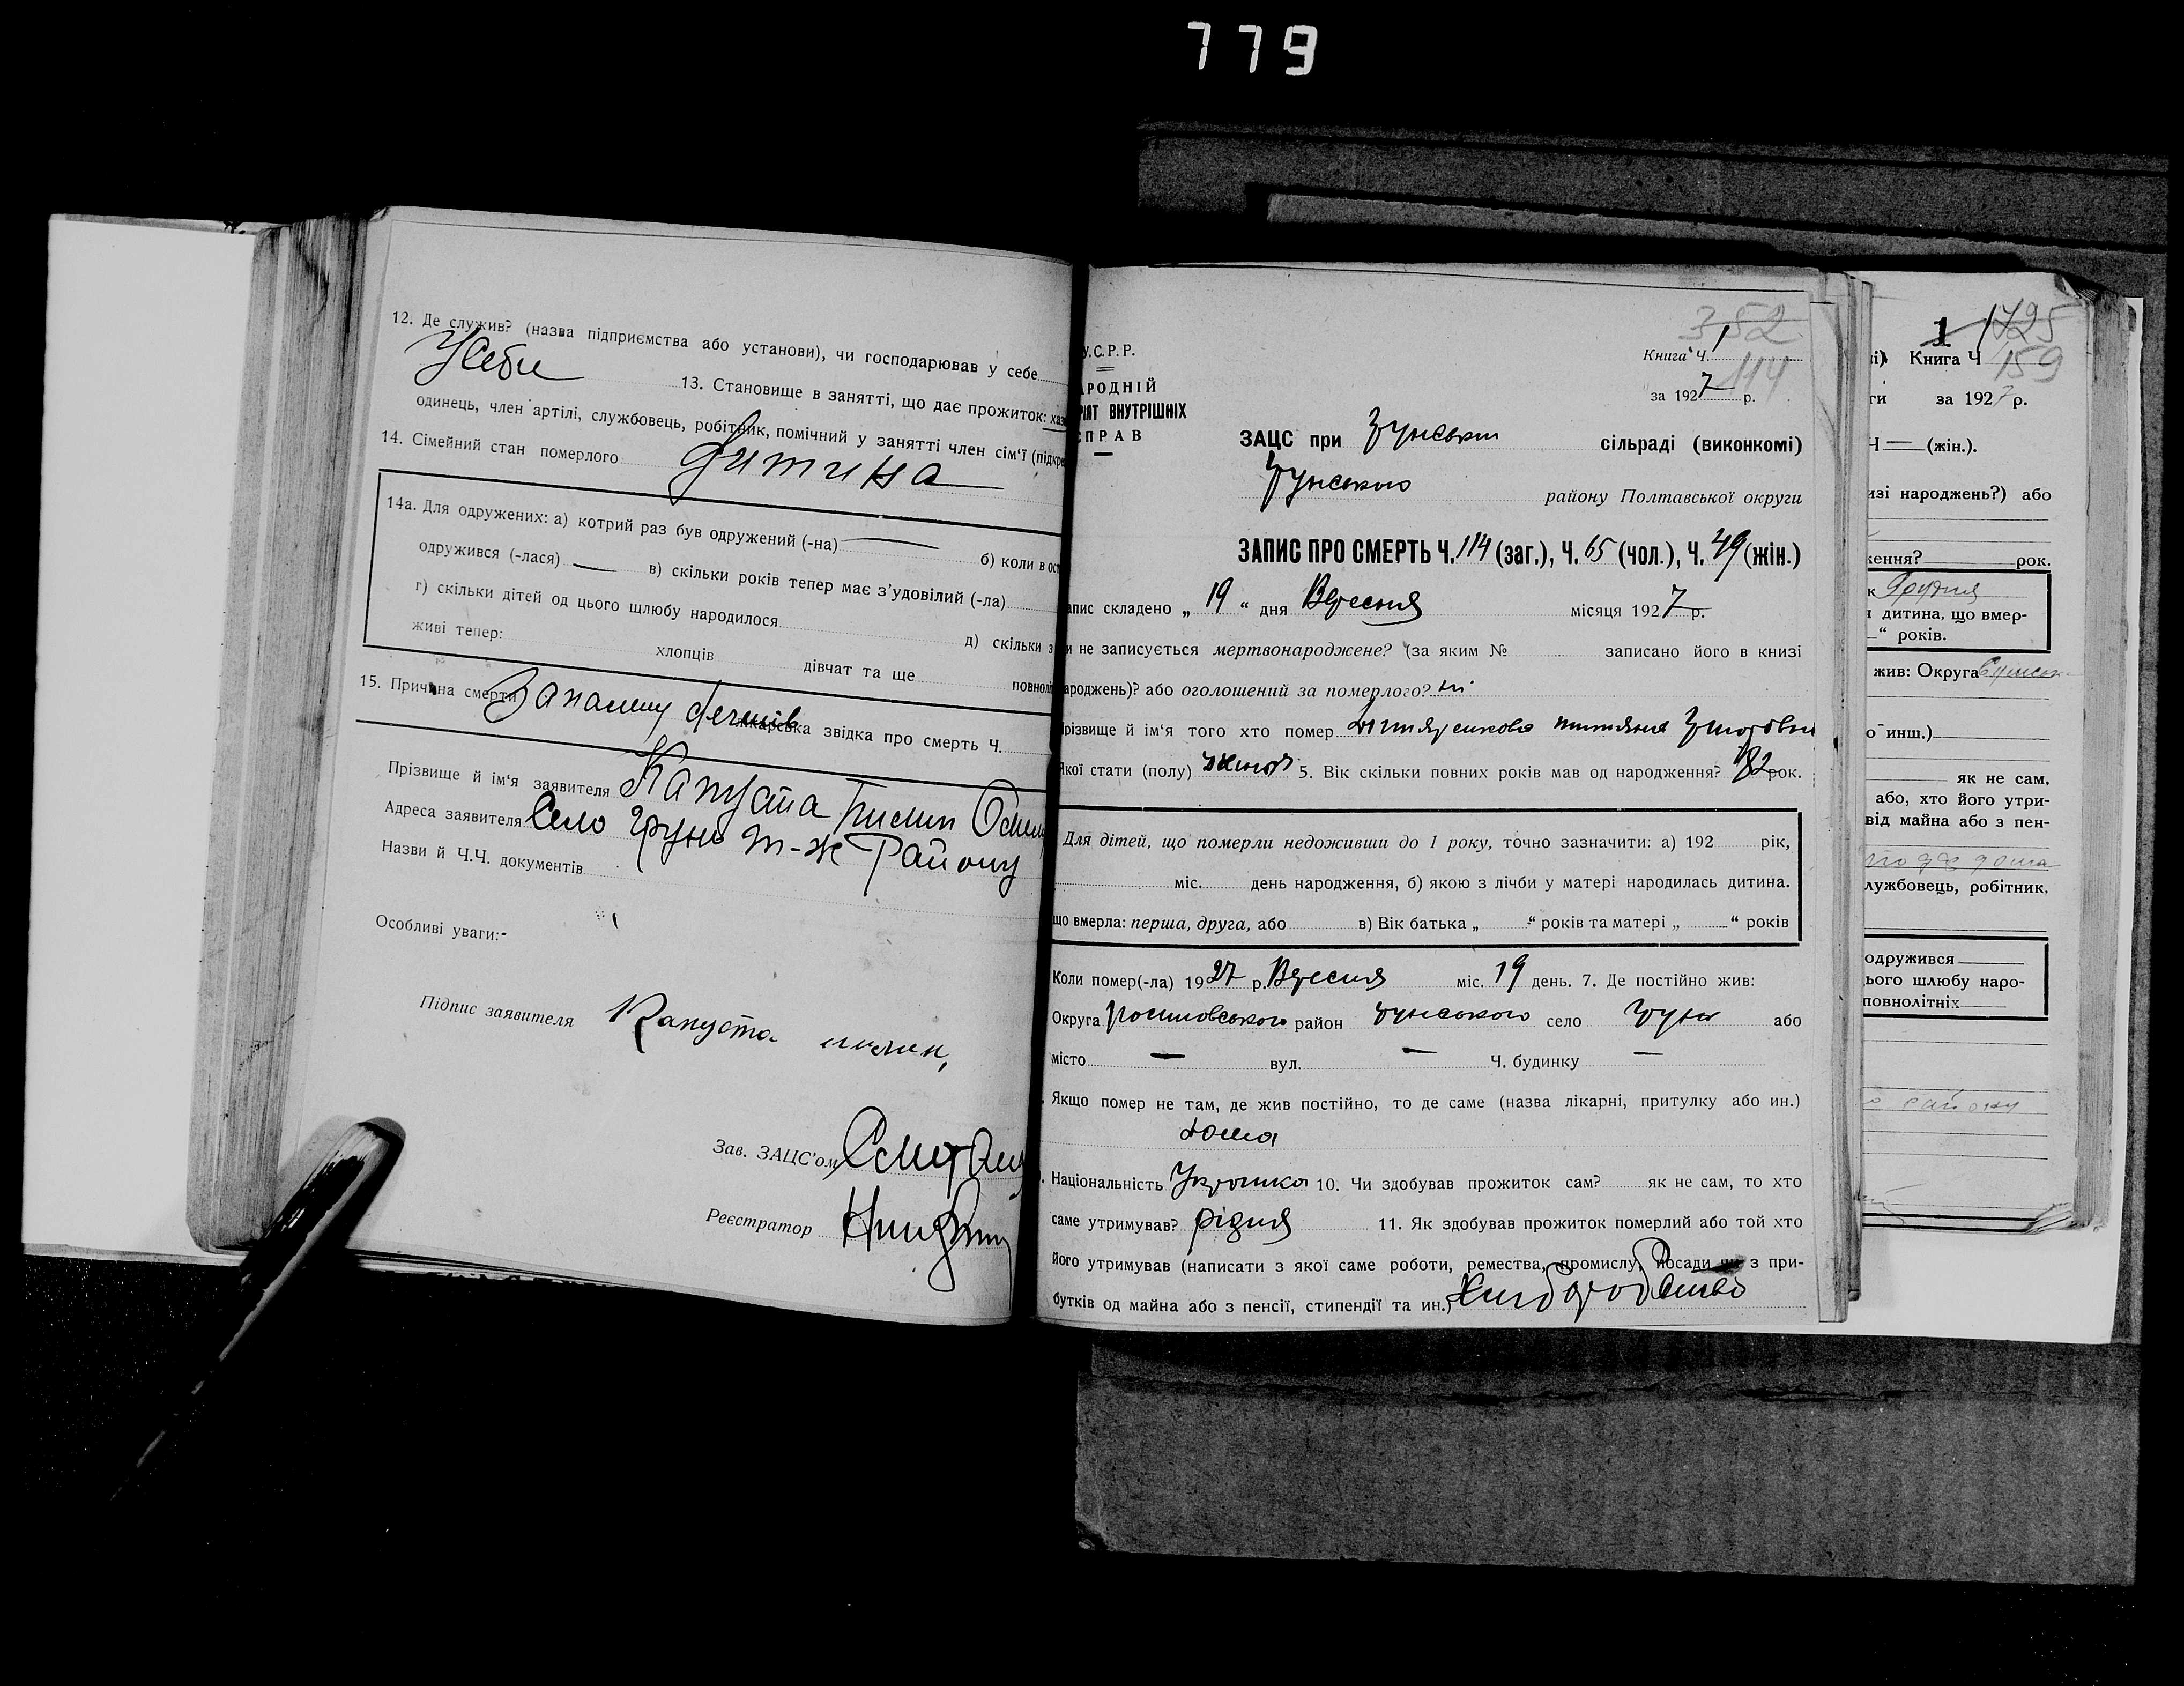 779
12. Де служив? (назва підприємства або установи), чи господарював у себе
У себе 13. Становище в занятті, що дає прожиток: хаз
одинець, член артілі, службовець, робітник, помічний у занятті член сім'ї (підкре
14. Сімейний стан померлого дитина
14а. Для одружених: а) котрий раз був одружений (-на) — б) коли в ост
одружився (-лася) — в) скільки років тепер має з'удовілий (-ла)
г) скільки дітей од цього шлюбу народилося д) скільки з
живі тепер: хлопців дівчат та ще повноліт
15. Причина смерти лікарська звідка про смерть Ч.
Прізвище й ім'я заявителя Капуста
Адреса заявителя Село Грунь т-ж Району
Назви й Ч.Ч. документів
Особливі уваги:-
Підпис заявителя Капуста
Зав. ЗАЦС'ом
Реєстратор
У.С.Р.Р.
АРОДНІЙ
РІЯТ ВНУТРІШНІХ
СПРАВ
352
Книга Ч. 1
114
за 1927 р.
ЗАЦС при Грунській сільраді (виконкомі)
Грунського району Полтавської округи
ЗАПИС ПРО СМЕРТЬ Ч. 114 (заг.), Ч. 65 (чол.), Ч. 49 (жін.)
апис складено „ 19 “ дня Вересня місяця 1927 р.
и не записується мертвонароджене? (за яким № записано його в книзі
ароджень)? або оголошений за померлого? ні
різвище й ім'я того хто помер
кої стати (полу) 5. Вік скільки повних років мав од народження? 82 рок.
Для дітей, що померли недоживши до 1 року, точно зазначити: а) 192 рік,
міс. день народження, б) якою з лічби у матері народилась дитина.
що вмерла: перша, друга, або в) Вік батька „ “ років та матері „ “ років
Коли помер(-ла) 1927 р. Вересня міс. 19 день. 7. Де постійно жив:
Округа район Грунського село Грунь або
місто — вул. — Ч. будинку —
Якщо помер не там, де жив постійно, то де саме (назва лікарні, притулку або ин.)
дома
Національність Українка 10. Чи здобував прожиток сам? як не сам, то хто
саме утримував? рідня 11. Як здобував прожиток померлий або той хто
його утримував (написати з якої саме роботи, ремества, промислу, посади чи з при-
бутків од майна або з пенсії, стипендії та ин.) Хліборобство
1 1725
і) Книга Ч 159
ги за 1927 р.
Ч — (жін.).
изі народжень?) або
ження? рок.
к Грудня
я дитина, що вмер-
“ років.
жив: Округа
о инш.)
як не сам,
або, хто його утри-
від майна або з пен-
дома
лужбовець, робітник,
одружився
ього шлюбу наро-
повнолітніх
району